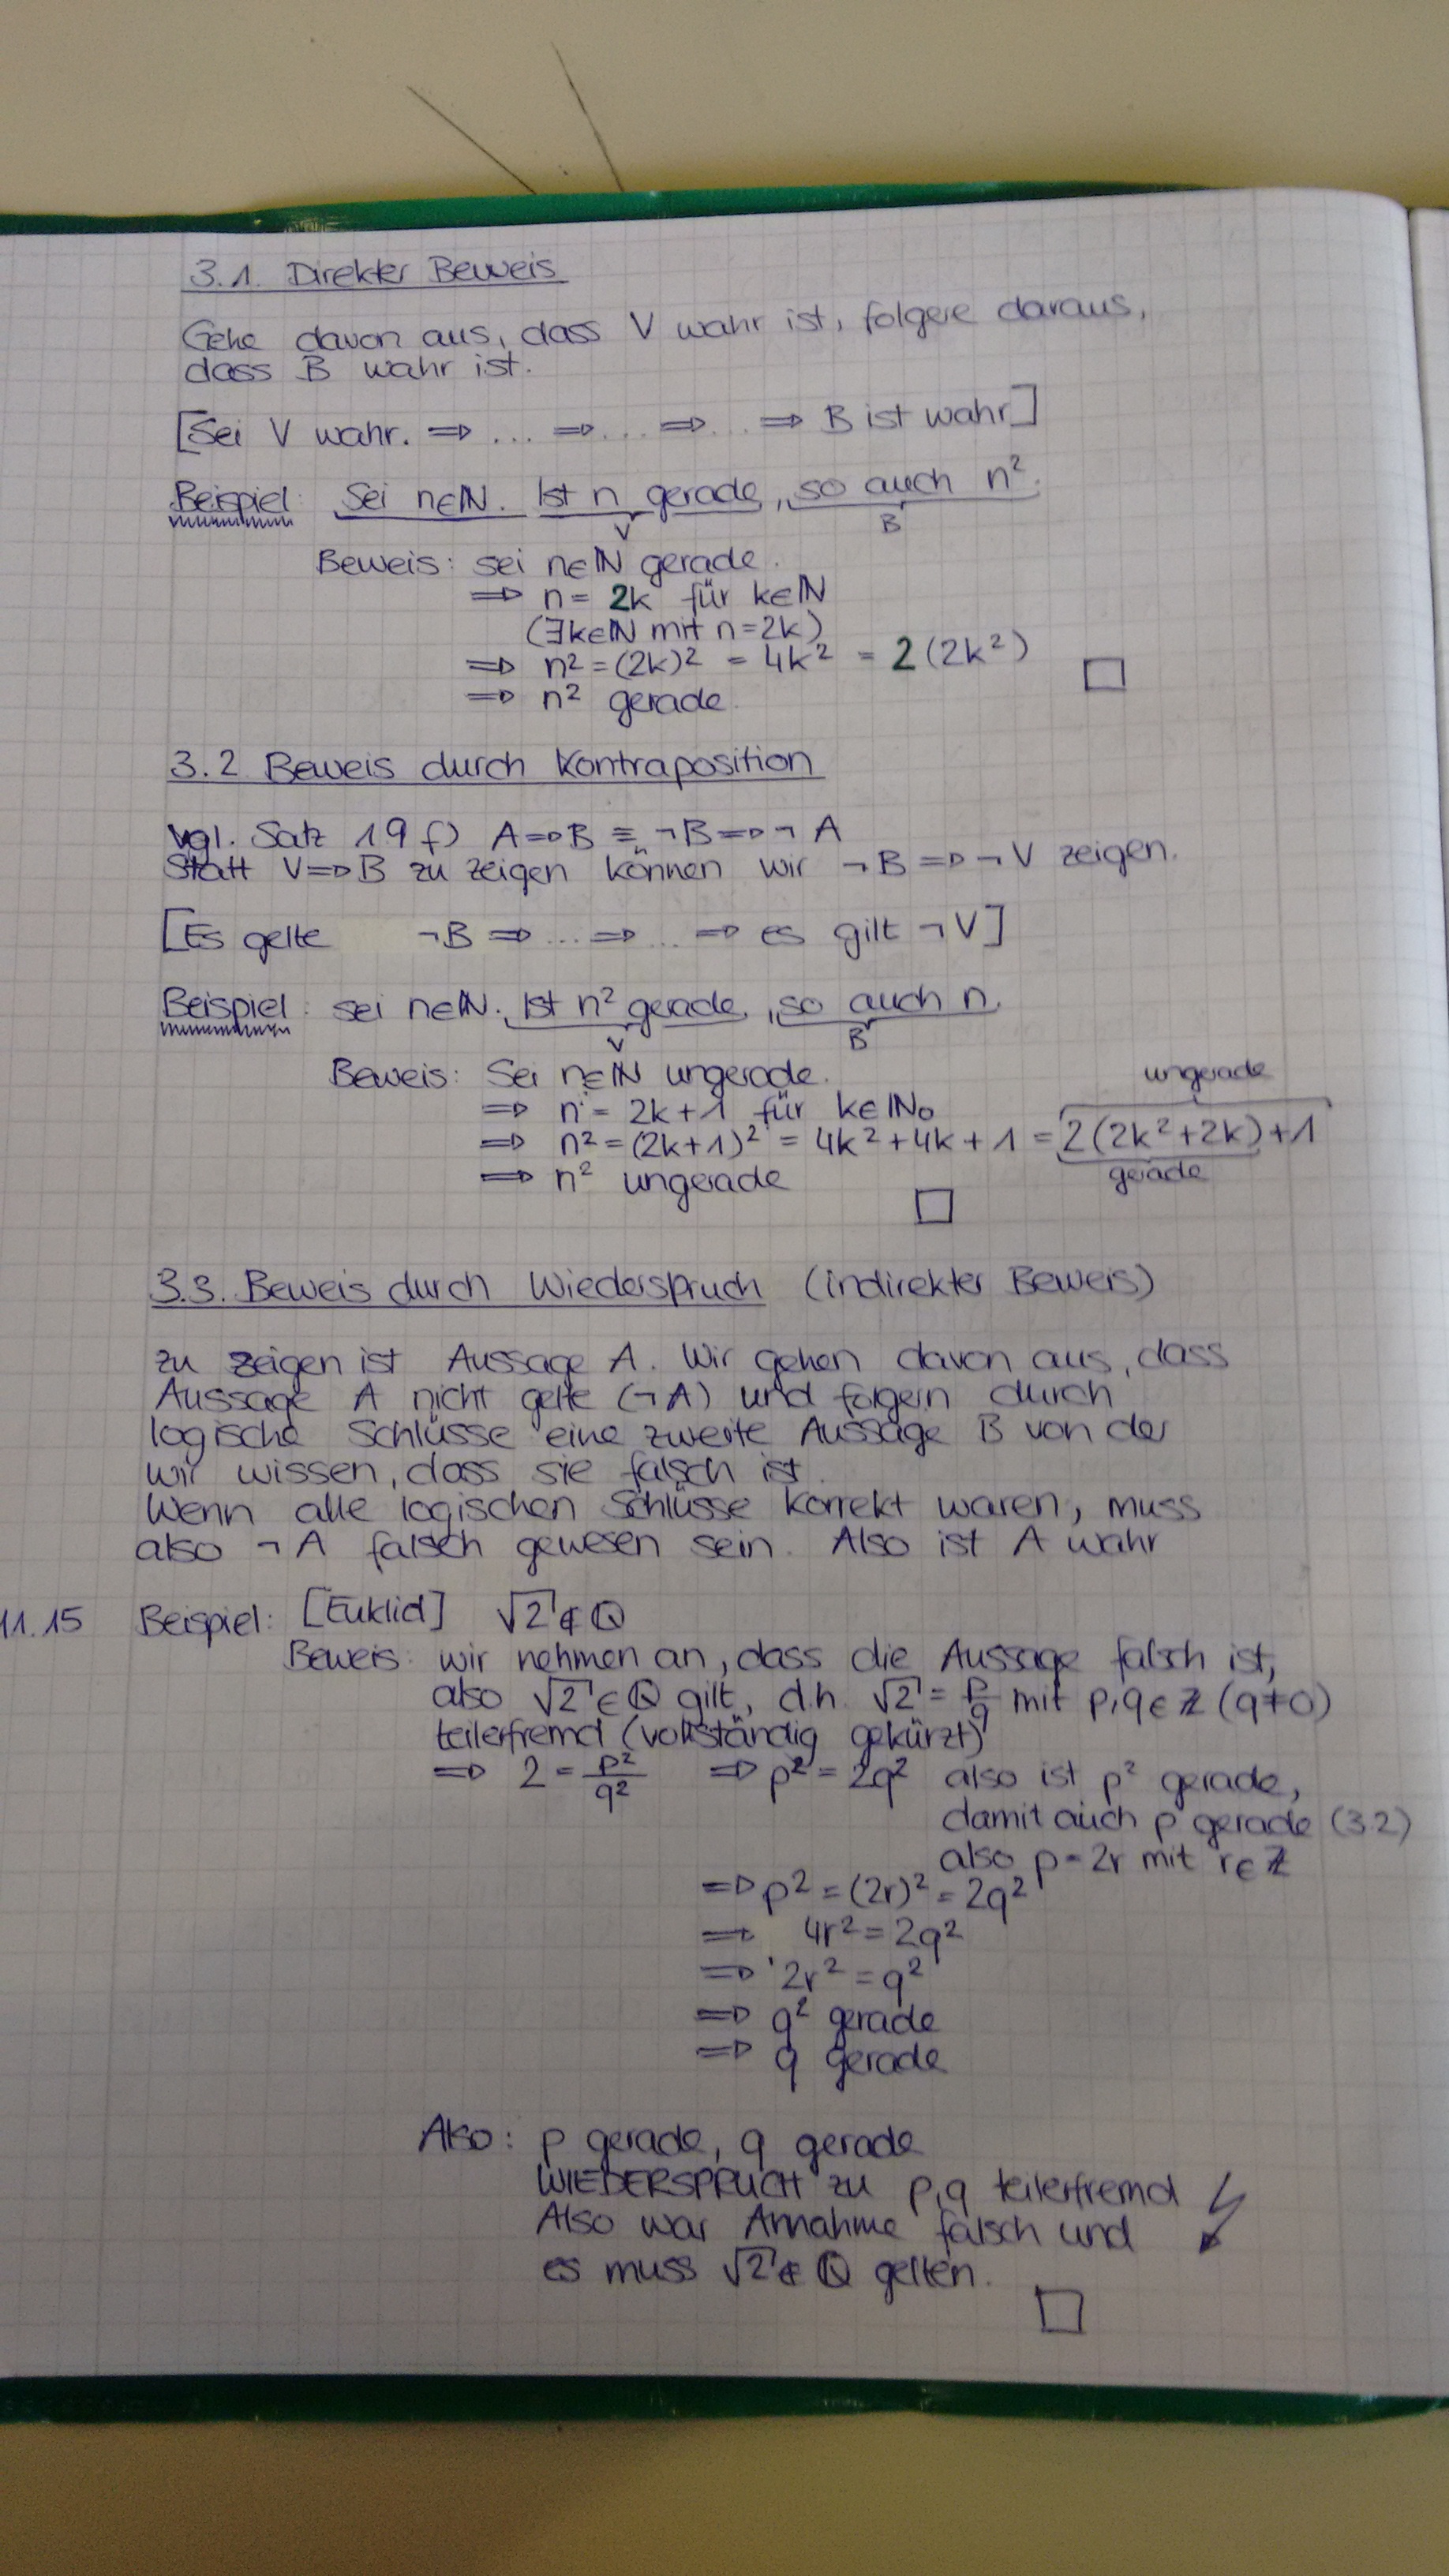 3.1. Direkter Beweis
Gehe davon aus, dass V wahr ist, folgere daraus,
dass B wahr ist.
[Sei V wahr. ⇒ ... ⇒ ... ⇒ ... ⇒ B ist wahr]
Beispiel: Sei n∈ℕ. Ist n gerade, so auch n².
V B
Beweis: sei n∈ℕ gerade.
⇒ n = 2k für k∈ℕ
(∃k∈ℕ mit n=2k)
⇒ n² = (2k)² = 4k² = 2(2k²) □
⇒ n² gerade
3.2 Beweis durch Kontraposition
vgl. Satz 19 f) A⇒B ≡ ¬B⇒¬A
Statt V⇒B zu zeigen können wir ¬B⇒¬V zeigen.
[Es gelte ¬B ⇒ ... ⇒ ... ⇒ es gilt ¬V]
Beispiel: sei n∈ℕ. Ist n² gerade, so auch n.
V B
Beweis: Sei n∈ℕ ungerade. ungerade
⇒ n = 2k+1 für k∈ℕ₀
⇒ n² = (2k+1)² = 4k²+4k+1 = 2(2k²+2k)+1
⇒ n² ungerade gerade
□
3.3. Beweis durch Wiederspruch (indirekter Beweis)
zu zeigen ist Aussage A. Wir gehen davon aus, dass
Aussage A nicht gelte (¬A) und folgern durch
logische Schlüsse eine zweite Aussage B von der
wir wissen, dass sie falsch ist.
Wenn alle logischen Schlüsse korrekt waren, muss
also ¬A falsch gewesen sein. Also ist A wahr
11.15 Beispiel: [Euklid] √2∉ℚ
Beweis: wir nehmen an, dass die Aussage falsch ist,
also √2∈ℚ gilt, d.h. √2 = p/q mit p,q∈ℤ (q≠0)
teilerfremd (vollständig gekürzt)
⇒ 2 = p²/q² ⇒ p² = 2q² also ist p² gerade,
damit auch p gerade (3.2)
also p=2r mit r∈ℤ
⇒ p² = (2r)² = 2q²
⇒ 4r² = 2q²
⇒ 2r² = q²
⇒ q² gerade
⇒ q gerade
Also: p gerade, q gerade
WIEDERSPRUCH zu p,q teilerfremd ↯
Also war Annahme falsch und
es muss √2∉ℚ gelten.
□